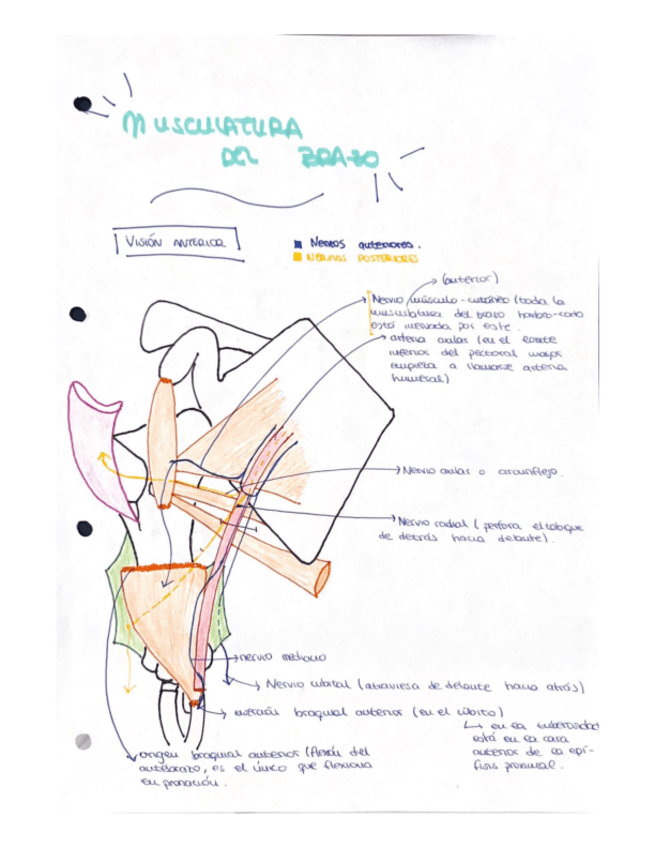 MUSCULATURA
DEL BRAZO
VISIÓN ANTERIOR
Nervios anteriores.
NERVIOS POSTERIORES
(anterior)
Nervio músculo-cutáneo (toda la
musculatura del brazo hombro-codo
está inervada por este.
arteria axilar (en el borde
inferior del pectoral mayor
empieza a llamarse arteria
humeral)
Nervio axilar o circunflejo.
Nervio radial (perfora el tabique
de detrás hacia delante).
nervio mediano
Nervio cubital (atraviesa de delante hacia atrás)
inserción braquial anterior (en el cúbito)
en la tuberosidad
está en la cara
anterior de la epí-
fisis proximal.
origen braquial anterior (flexión del
antebrazo, es el único que flexiona
en pronación.